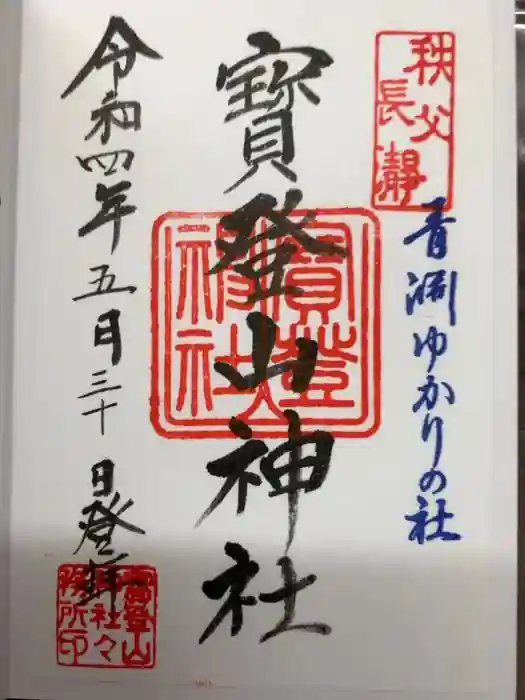 秩父
長瀞
青淵ゆかりの社
寳登山神社
寳登山
神社
令和四年五月三十日登拝
寳登山
神社々
務所印